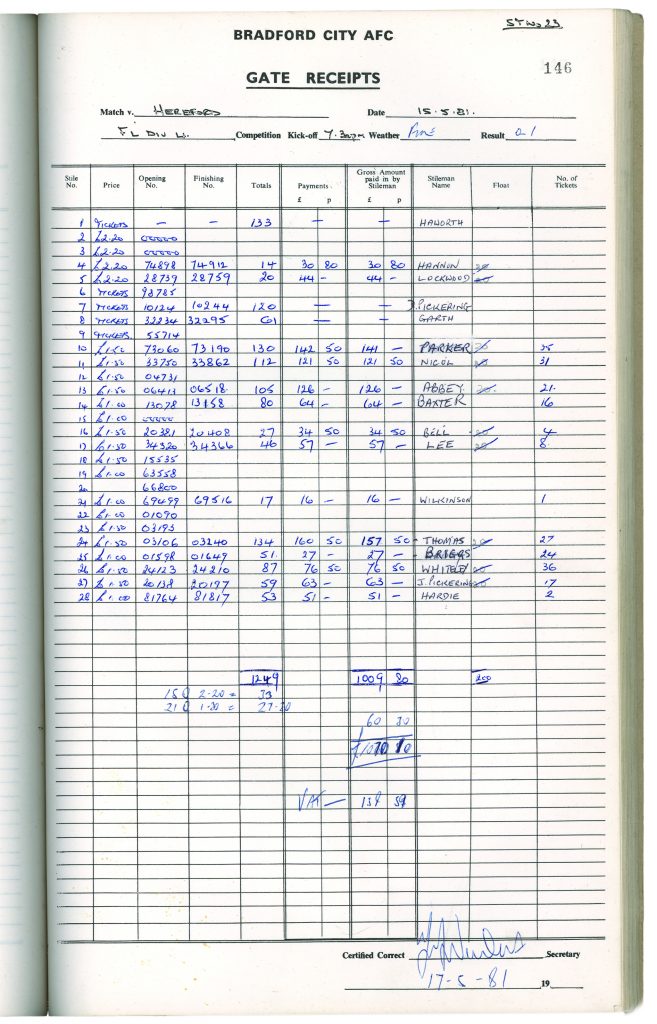 ST No 23
BRADFORD CITY AFC
146
GATE RECEIPTS
Match v. HEREFORD Date 15.5.81.
FL DIV IV. Competition Kick-off 7.30pm Weather Fine Result 0 1
Stile No. Price Opening No. Finishing No. Totals Payments £ p Gross Amount paid in by Stileman £ p Stileman Name Float No. of Tickets
1 TICKETS — — 133 — — HAWORTH
2 £2.20 00000
3 £2.20 00000
4 £2.20 74898 74912 14 30 80 30 80 HANNON 20
5 £2.20 28739 28759 20 44 - 44 - LOCKWOOD 20
6 TICKETS 98785
7 TICKETS 10124 10244 120 — — PICKERING
8 TICKETS 32234 32295 61 — — GARTH
9 TICKETS 55714
10 £1.50 73060 73190 130 142 50 141 - PARKER 35
11 £1.50 33750 33862 112 121 50 121 50 NICOL 20 31
12 £1.50 04731
13 £1.50 06413 06518 105 126 - 126 - ABBEY 20 21
14 £1.00 13078 13158 80 64 - 64 - BAXTER 16
15 £1.00 00000
16 £1.50 20381 20408 27 34 50 34 50 BELL 20 4
17 £1.50 34320 34366 46 57 - 57 - LEE 20 8
18 £1.50 15535
19 £1.00 63558
20 66800
21 £1.00 69499 69516 17 16 - 16 - WILKINSON 1
22 £1.00 01090
23 £1.50 03193
24 £1.50 03106 03240 134 160 50 157 50 THOMAS 20 27
25 £1.00 01598 01649 51 27 - 27 - BRIGGS 24
26 £1.50 24123 24210 87 76 50 76 50 WHITELEY 20 36
27 £1.50 20138 20197 59 63 - 63 - J. PICKERING 20 17
28 £1.00 81764 81817 53 51 - 51 - HARDIE 2
1249 1009 80 200
15 @ 2-20 = 33
21 @ 1-30 = 27-30
60 30
£1070 10
VAT — 139 59
Certified Correct Secretary
17-5-81 19